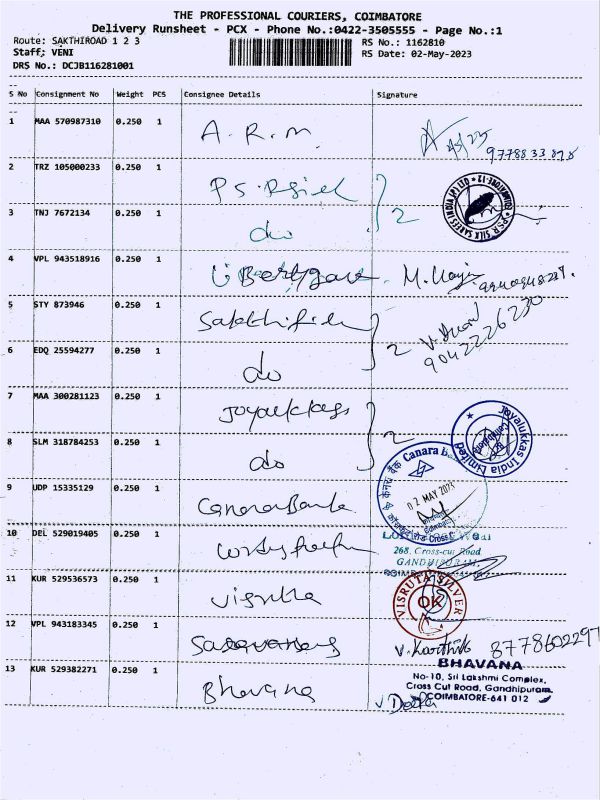 THE PROFESSIONAL COURIERS, COIMBATORE
Delivery Runsheet - PCX - Phone No.:0422-3505555 - Page No.:1
Route: SAKTHIROAD 1 2 3
RS No.: 1162810
Staff: VENI
RS Date: 02-May-2023
DRS No.: DCJB116281001
S No Consignment No Weight PCS Consignee Details Signature
1 MAA 570987310 0.250 1 A.R.M.
2 TRZ 105000233 0.250 1 2
P.S.R SILK SAREES INDIA (P) LTD COIMBATORE-12
3 TNJ 7672134 0.250 1 do
4 VPL 943518916 0.250 1
5 STY 873946 0.250 1 2
9042226230
6 EDQ 25594277 0.250 1 do
7 MAA 300281123 0.250 1 2
Joyalukkas India Limited Coimbatore
8 SLM 318784253 0.250 1 do
9 UDP 15335129 0.250 1 Canara Bank
केनरा बैंक Canara
02 MAY 2023
10 DEL 529019405 0.250 1
268, Cross-cut Road
GANDHIPURAM,
11 KUR 529536573 0.250 1 Visrutha
VISRUTA SILVER
OK
12 VPL 943183345 0.250 1
V. Karthik 8778602297
13 KUR 529382271 0.250 1 Bhavana
BHAVANA
No-10, Sri Lakshmi Complex,
Cross Cut Road, Gandhipuram,
COIMBATORE-641 012